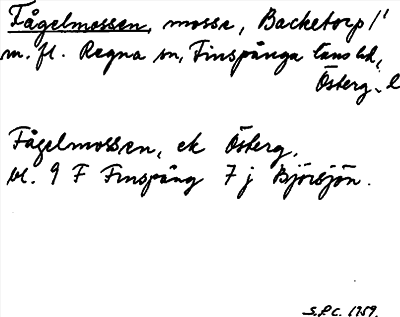 Fågelmossen, mosse, Backetorp 1/1
m. fl. Regna sn, Finspånga läns hd,
Österg. l
Fågelmossen, ek Österg.
bl. 9 F Finspång 7 j Björsjön.
S.P.C. 1959.